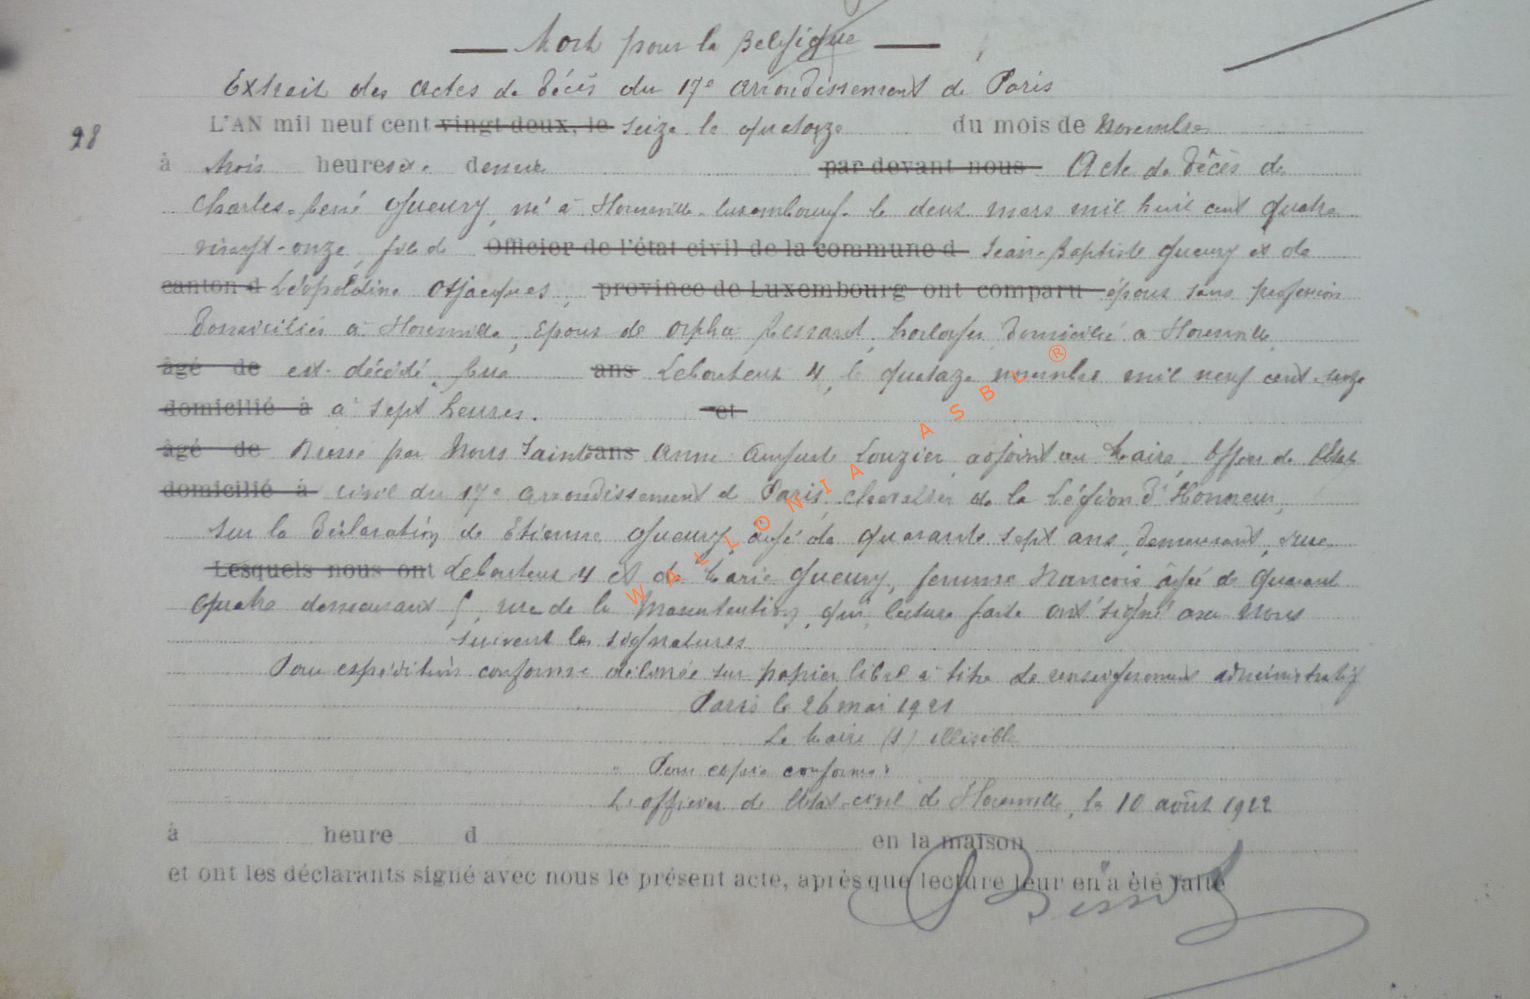 Mort pour la Belgique
Extrait des actes de décès du 17e arrondissement de Paris
28
L'AN mil neuf cent vingt deux, le seize le quatorze du mois de Novembre
à trois heures et demie par devant nous Acte de décès de
Charles René Gueury, né à Houmville Luxembourg le deux mars mil huit cent quatre
vingt-onze, fils de Officier de l'état civil de la commune d Jean-Baptiste Gueury et de
canton d Léopoldine Otjacques, province de Luxembourg ont comparu époux sans profession
domiciliés à, Epoux de Orpha Ressard, horloger, domicilié à
âgé de est décédé, rue ans Lebouteux 4, le quatorze novembre mil neuf cent seize
domicilié à à sept heures. et
âgé de Dressé par Nous ans Anne Auguste Louzier, adjoint au Maire, Officier de l'état
domicilié à civil du 17e arrondissement de Paris, chevalier de la Légion d'Honneur,
sur la déclaration de Etienne Gueury, âgé de quarante sept ans, demeurant, rue
Lesquels nous ont Lebouteux 4 et de Marie Gueury, femme François âgée de quarante
quatre demeurant 5, rue de la Manutention, qui, lecture faite ont signé avec Nous
suivent les signatures
Pour expédition conforme délivrée sur papier libre à titre de renseignement administratif
Paris le 26 mai 1921
Le Maire (s) illisible
Pour copie conforme:
L'officier de l'état-civil de, le 10 août 1922
à heure d en la maison
et ont les déclarants signé avec nous le présent acte, après que lecture leur en a été faite
WALLONIA ASBL ®